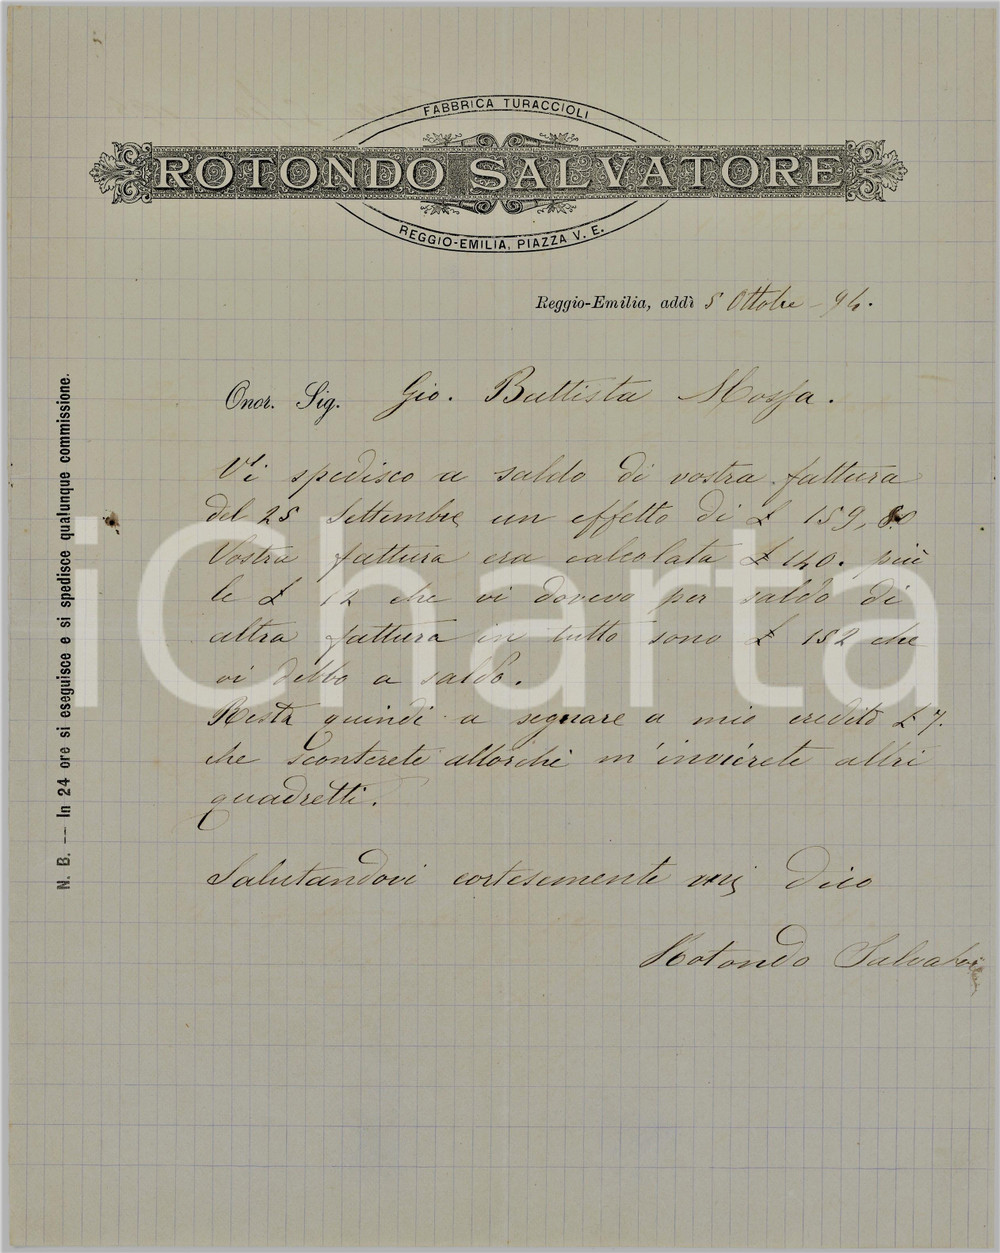 FABBRICA TURACCIOLI
ROTONDO SALVATORE
REGGIO-EMILIA, PIAZZA V. E.
Reggio-Emilia, addì 5 Ottobre - 94.
Onor. Sig. Gio. Battista Mossa.
Vi spedisco a saldo di vostra fattura
del 25 Settembre un effetto di £ 159,80
Vostra fattura era calcolata £ 140. più
le £ 12 che vi dovevo per saldo di
altra fattura in tutto sono £ 152 che
vi debbo a saldo.
Resta quindi a segnare a mio credito £ 7.
che sconterete allorchè m'invierete altri
quadretti.
Salutandovi cortesemente mi dico
Rotondo Salvatore
N. B. -- In 24 ore si eseguisce e si spedisce qualunque commissione.
iCharta